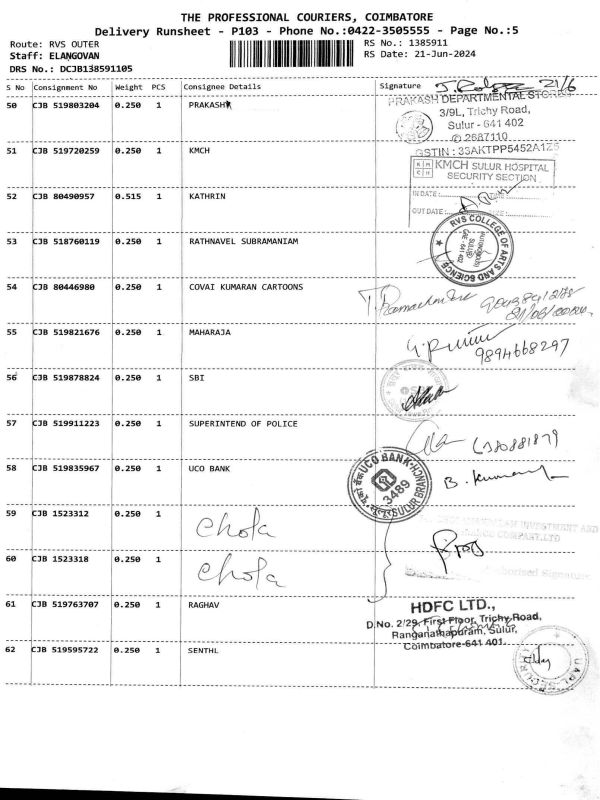 THE PROFESSIONAL COURIERS, COIMBATORE
Delivery Runsheet - P103 - Phone No.:0422-3505555 - Page No.:5
Route: RVS OUTER
RS No.: 1385911
Staff: ELANGOVAN
RS Date: 21-Jun-2024
DRS No.: DCJB138591105
S No Consignment No Weight PCS Consignee Details Signature
21/6
50 CJB 519803204 0.250 1 PRAKASH
PRAKASH DEPARTMENTAL STORES
3/9L, Trichy Road,
Sulur - 641 402
✆ 2687110
GSTIN : 33AKTPP5452A1Z5
51 CJB 519720259 0.250 1 KMCH
KMCH SULUR HOSPITAL
SECURITY SECTION
52 CJB 80490957 0.515 1 KATHRIN
IN DATE:
OUT DATE:
53 CJB 518760119 0.250 1 RATHNAVEL SUBRAMANIAM
RVS COLLEGE OF ARTS AND SCIENCE
54 CJB 80446980 0.250 1 COVAI KUMARAN CARTOONS
55 CJB 519821676 0.250 1 MAHARAJA
9894668297
56 CJB 519878824 0.250 1 SBI
57 CJB 519911223 0.250 1 SUPERINTEND OF POLICE
58 CJB 519835967 0.250 1 UCO BANK
UCO BANK
3489
SULUR BRANCH
B. Kumar
59 CJB 1523312 0.250 1 Chola
INVESTMENT AND
COMPANY LTD
60 CJB 1523318 0.250 1 Chola
Authorised Signature
61 CJB 519763707 0.250 1 RAGHAV
HDFC LTD.,
D.No. 2/29, First Floor, Trichy Road,
Ranganathapuram, Sulur,
Coimbatore-641 401.
62 CJB 519595722 0.250 1 SENTHL